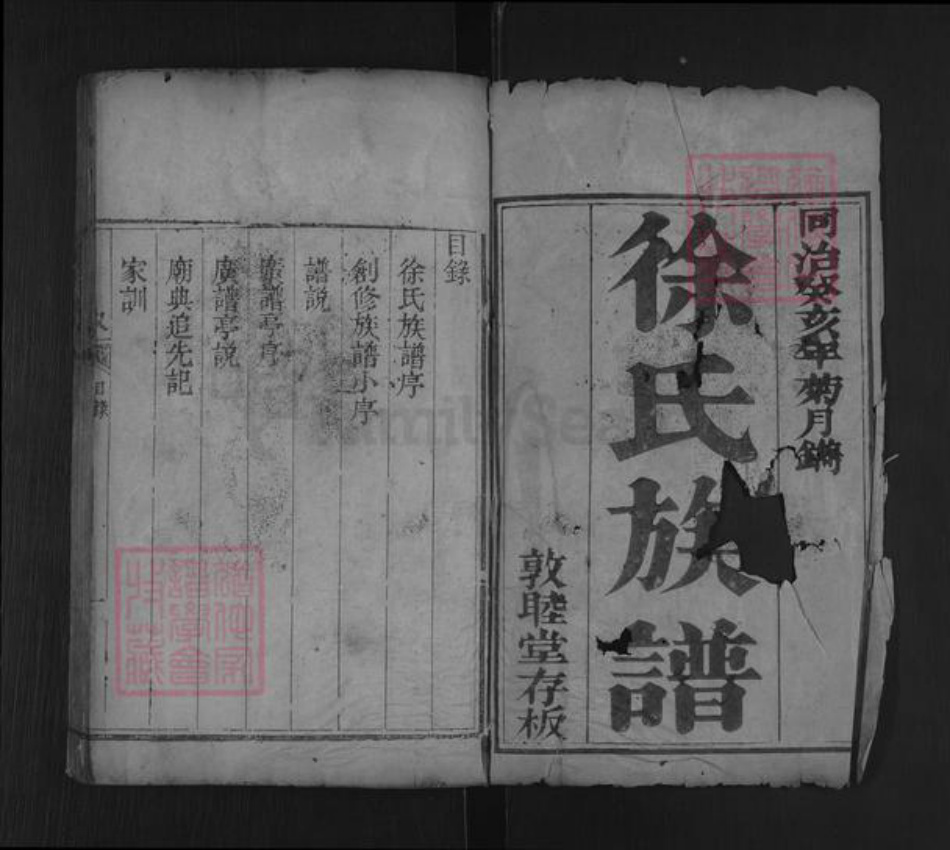 同治癸亥年菊月鐫
徐氏族譜
敦睦堂存板
目錄
徐氏族譜序
創修族譜小序
譜説
譜亭序
廣譜亭説
廟典追先記
家訓
目錄
FamilySearch